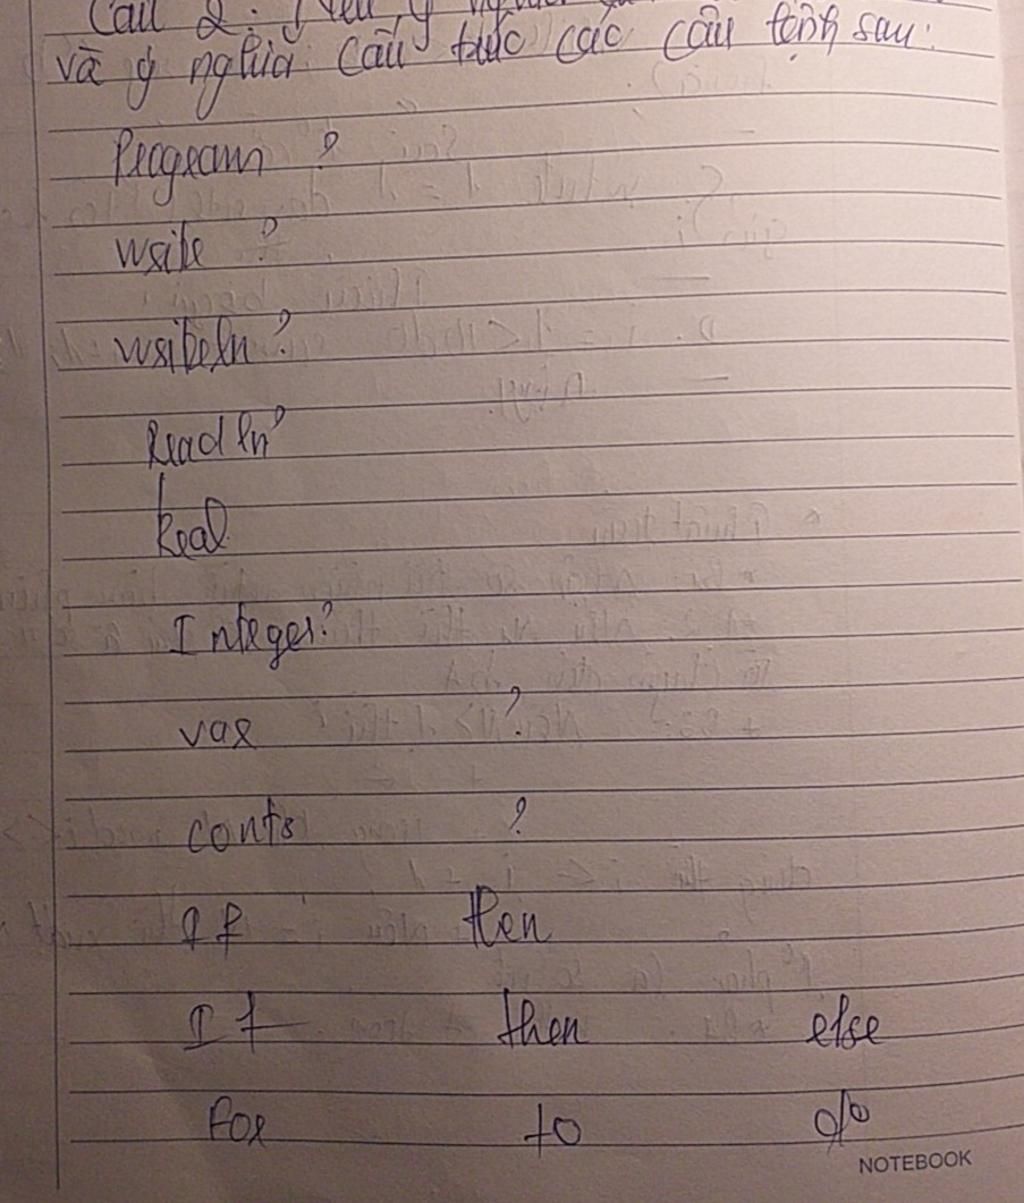 Câu 2: Nêu ý nghĩa
và ý nghĩa cấu trúc các câu lệnh sau:
Program ?
Write ?
writeln ?
Readln ?
Real
Integer ?
var ?
conts ?
If then
If then else
For to do
NOTEBOOK